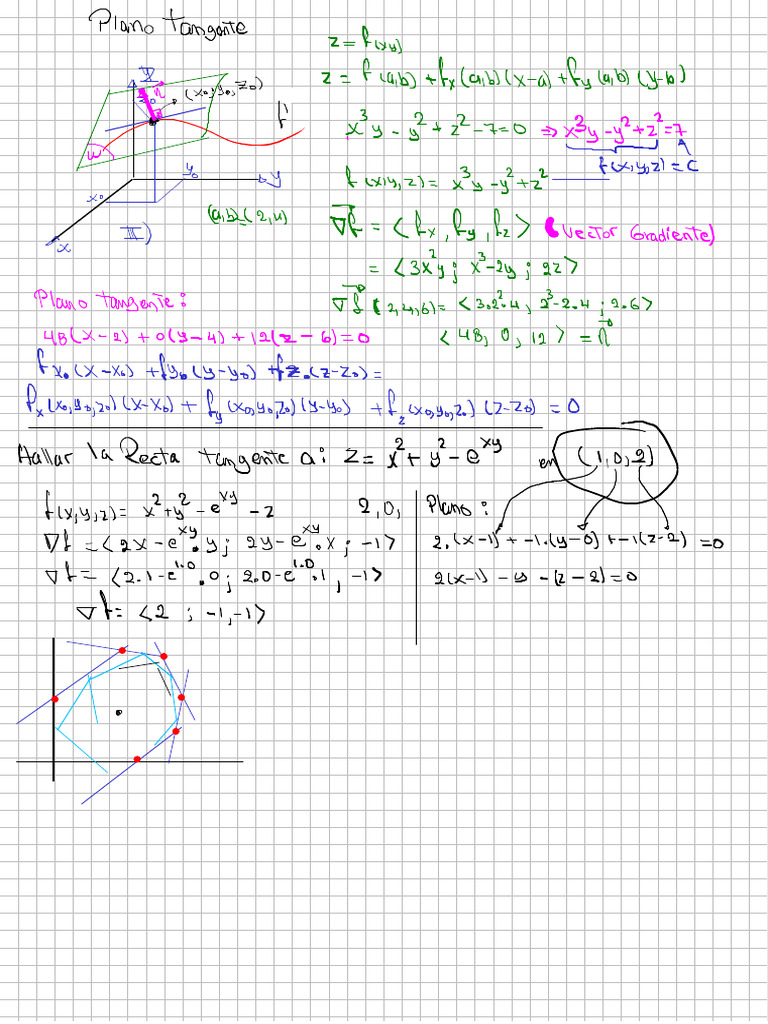 Plano tangente
z = f(x,y)
z = f(a,b) + fx(a,b)(x-a) + fy(a,b)(y-b)
n
z0
(x0, y0, z0)
f
w
x0
y0
y
x
II)
(a,b)=(2,4)
x³y - y² + z² - 7 = 0 ⇒ x³y - y² + z² = 7
f(x,y,z) = c
f(x,y,z) = x³y - y² + z²
∇f = <fx, fy, fz> (Vector Gradiente)
= <3x²y ; x³-2y ; 2z>
Plano tangente:
∇f(2,4,6) = <3.2².4, 2³-2.4 ; 2.6>
48(x-2) + 0(y-4) + 12(z-6) = 0
<48, 0, 12> = n
fx0(x-x0) + fy0(y-y0) + fz0(z-z0) =
fx(x0,y0,z0)(x-x0) + fy(x0,y0,z0)(y-y0) + fz(x0,y0,z0)(z-z0) = 0
Hallar la Recta tangente a: z = x² + y² - e^xy en (1,0,2)
f(x,y,z) = x² + y² - e^xy - z 2,0,
∇f = <2x - e^xy.y ; 2y - e^xy.x ; -1>
∇f = <2.1 - e^1.0.0 ; 2.0 - e^1.0.1, -1>
∇f = <2 ; -1, -1>
Plano:
2.(x-1) + -1.(y-0) + -1(z-2) = 0
2(x-1) - y - (z-2) = 0